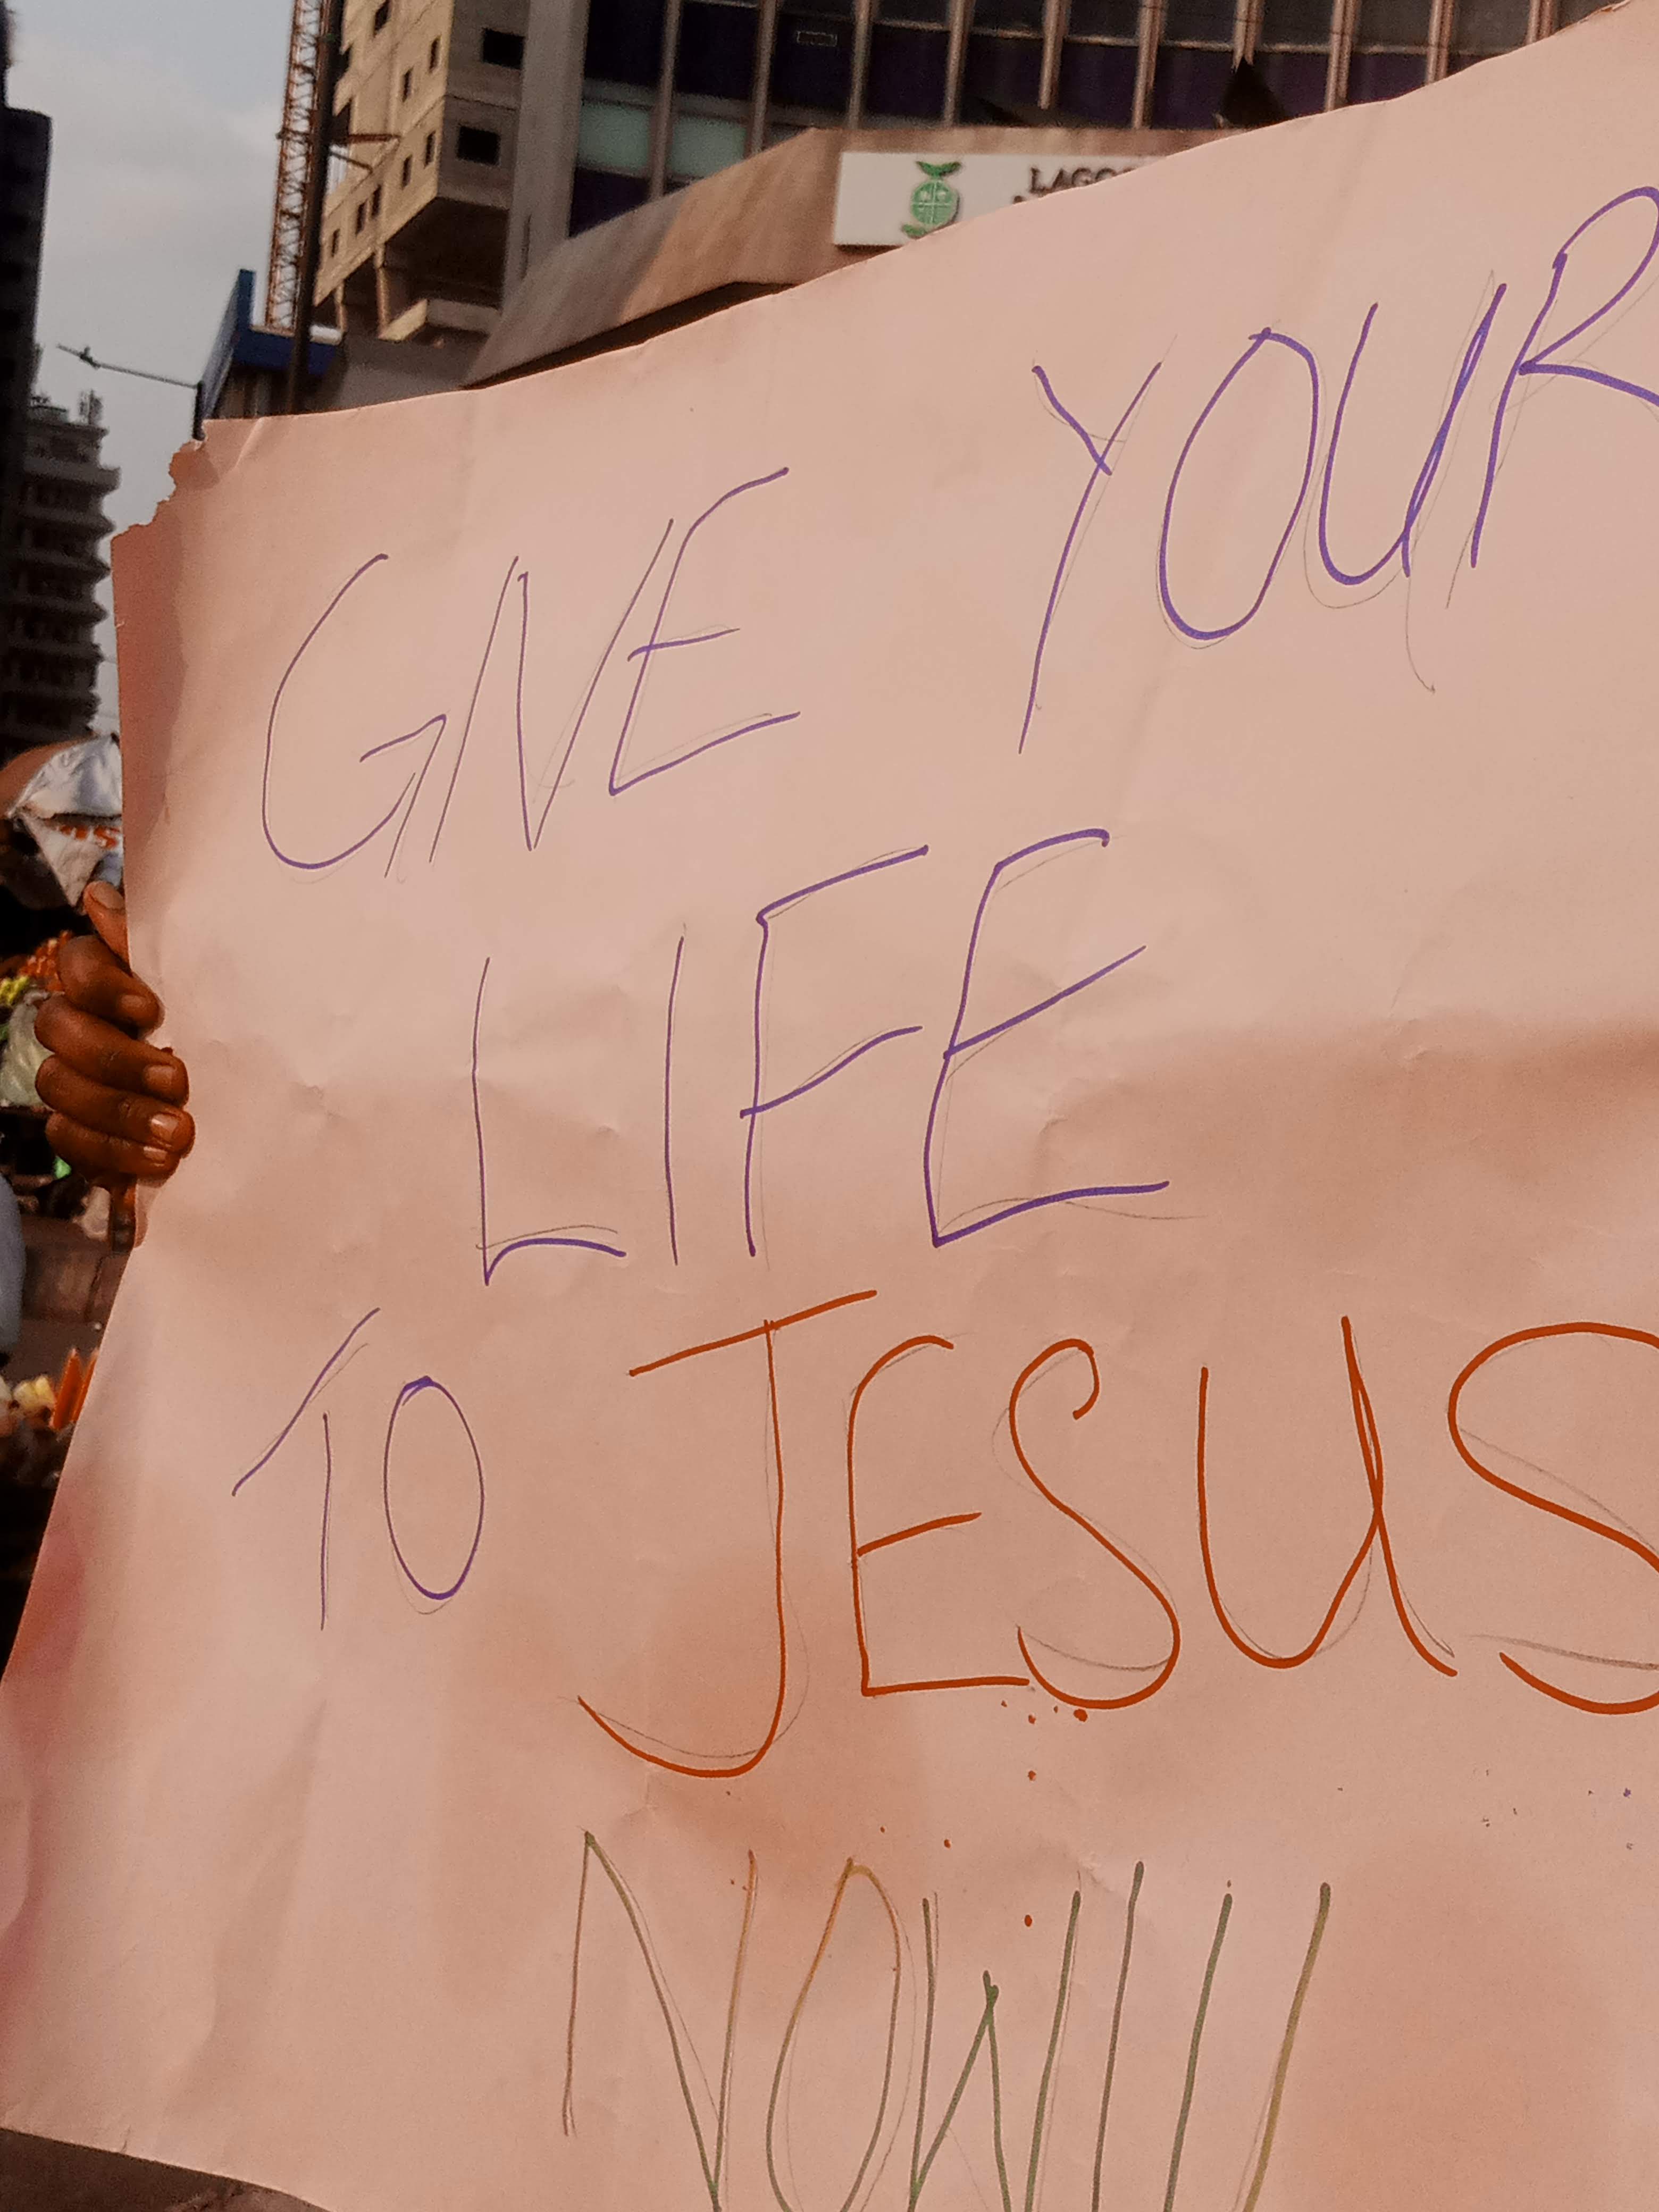 LAGOS
GIVE YOUR
LIFE
TO JESUS
NOW!!!